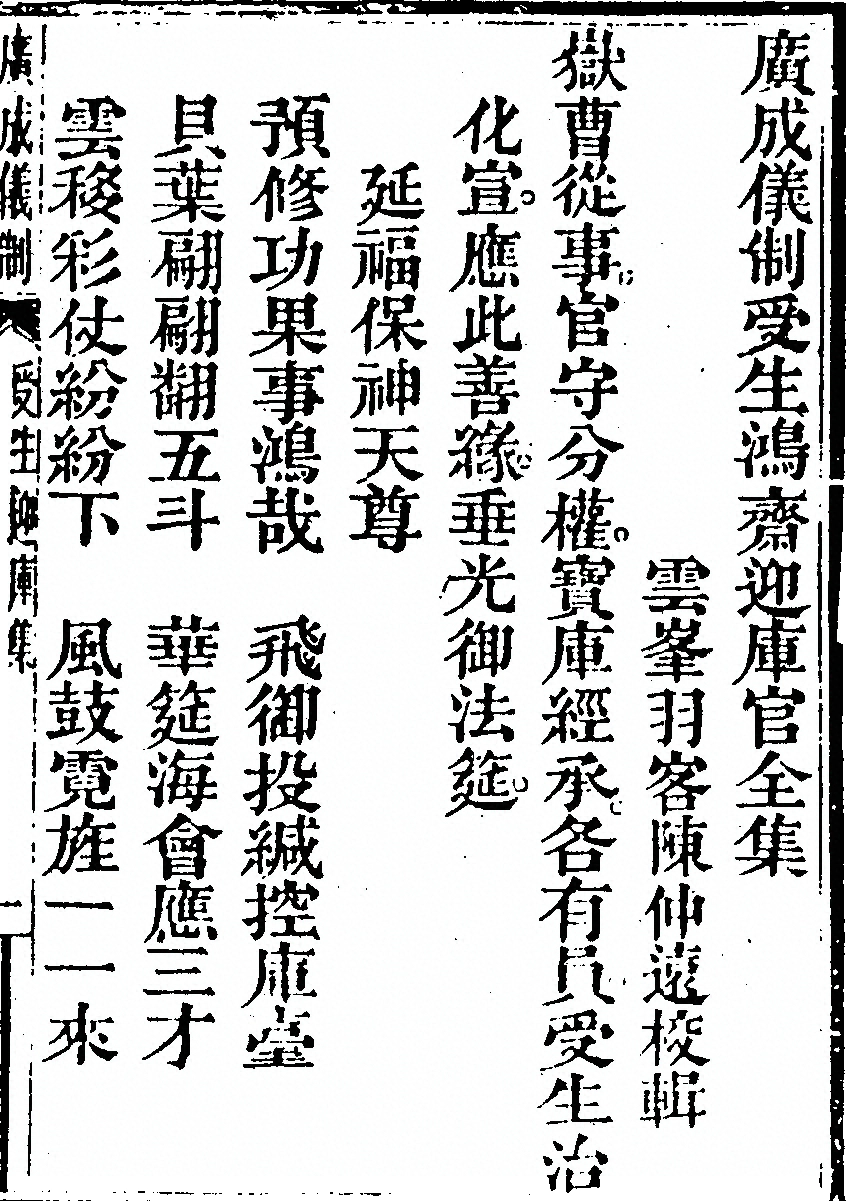 廣成儀制受生鴻齋迎庫官全集
雲峯羽客陳仲遠校輯
獄曹從事官守分權寶庫經承各有員受生治
化宣應此善緣垂光御法筵
延福保神天尊
預修功果事鴻哉　飛御投緘控庫臺
貝葉翩翩翻五斗　華筵海會應三才
雲移彩仗紛紛下　風鼓霓旌一一來
廣成儀制　受生迎庫集　一